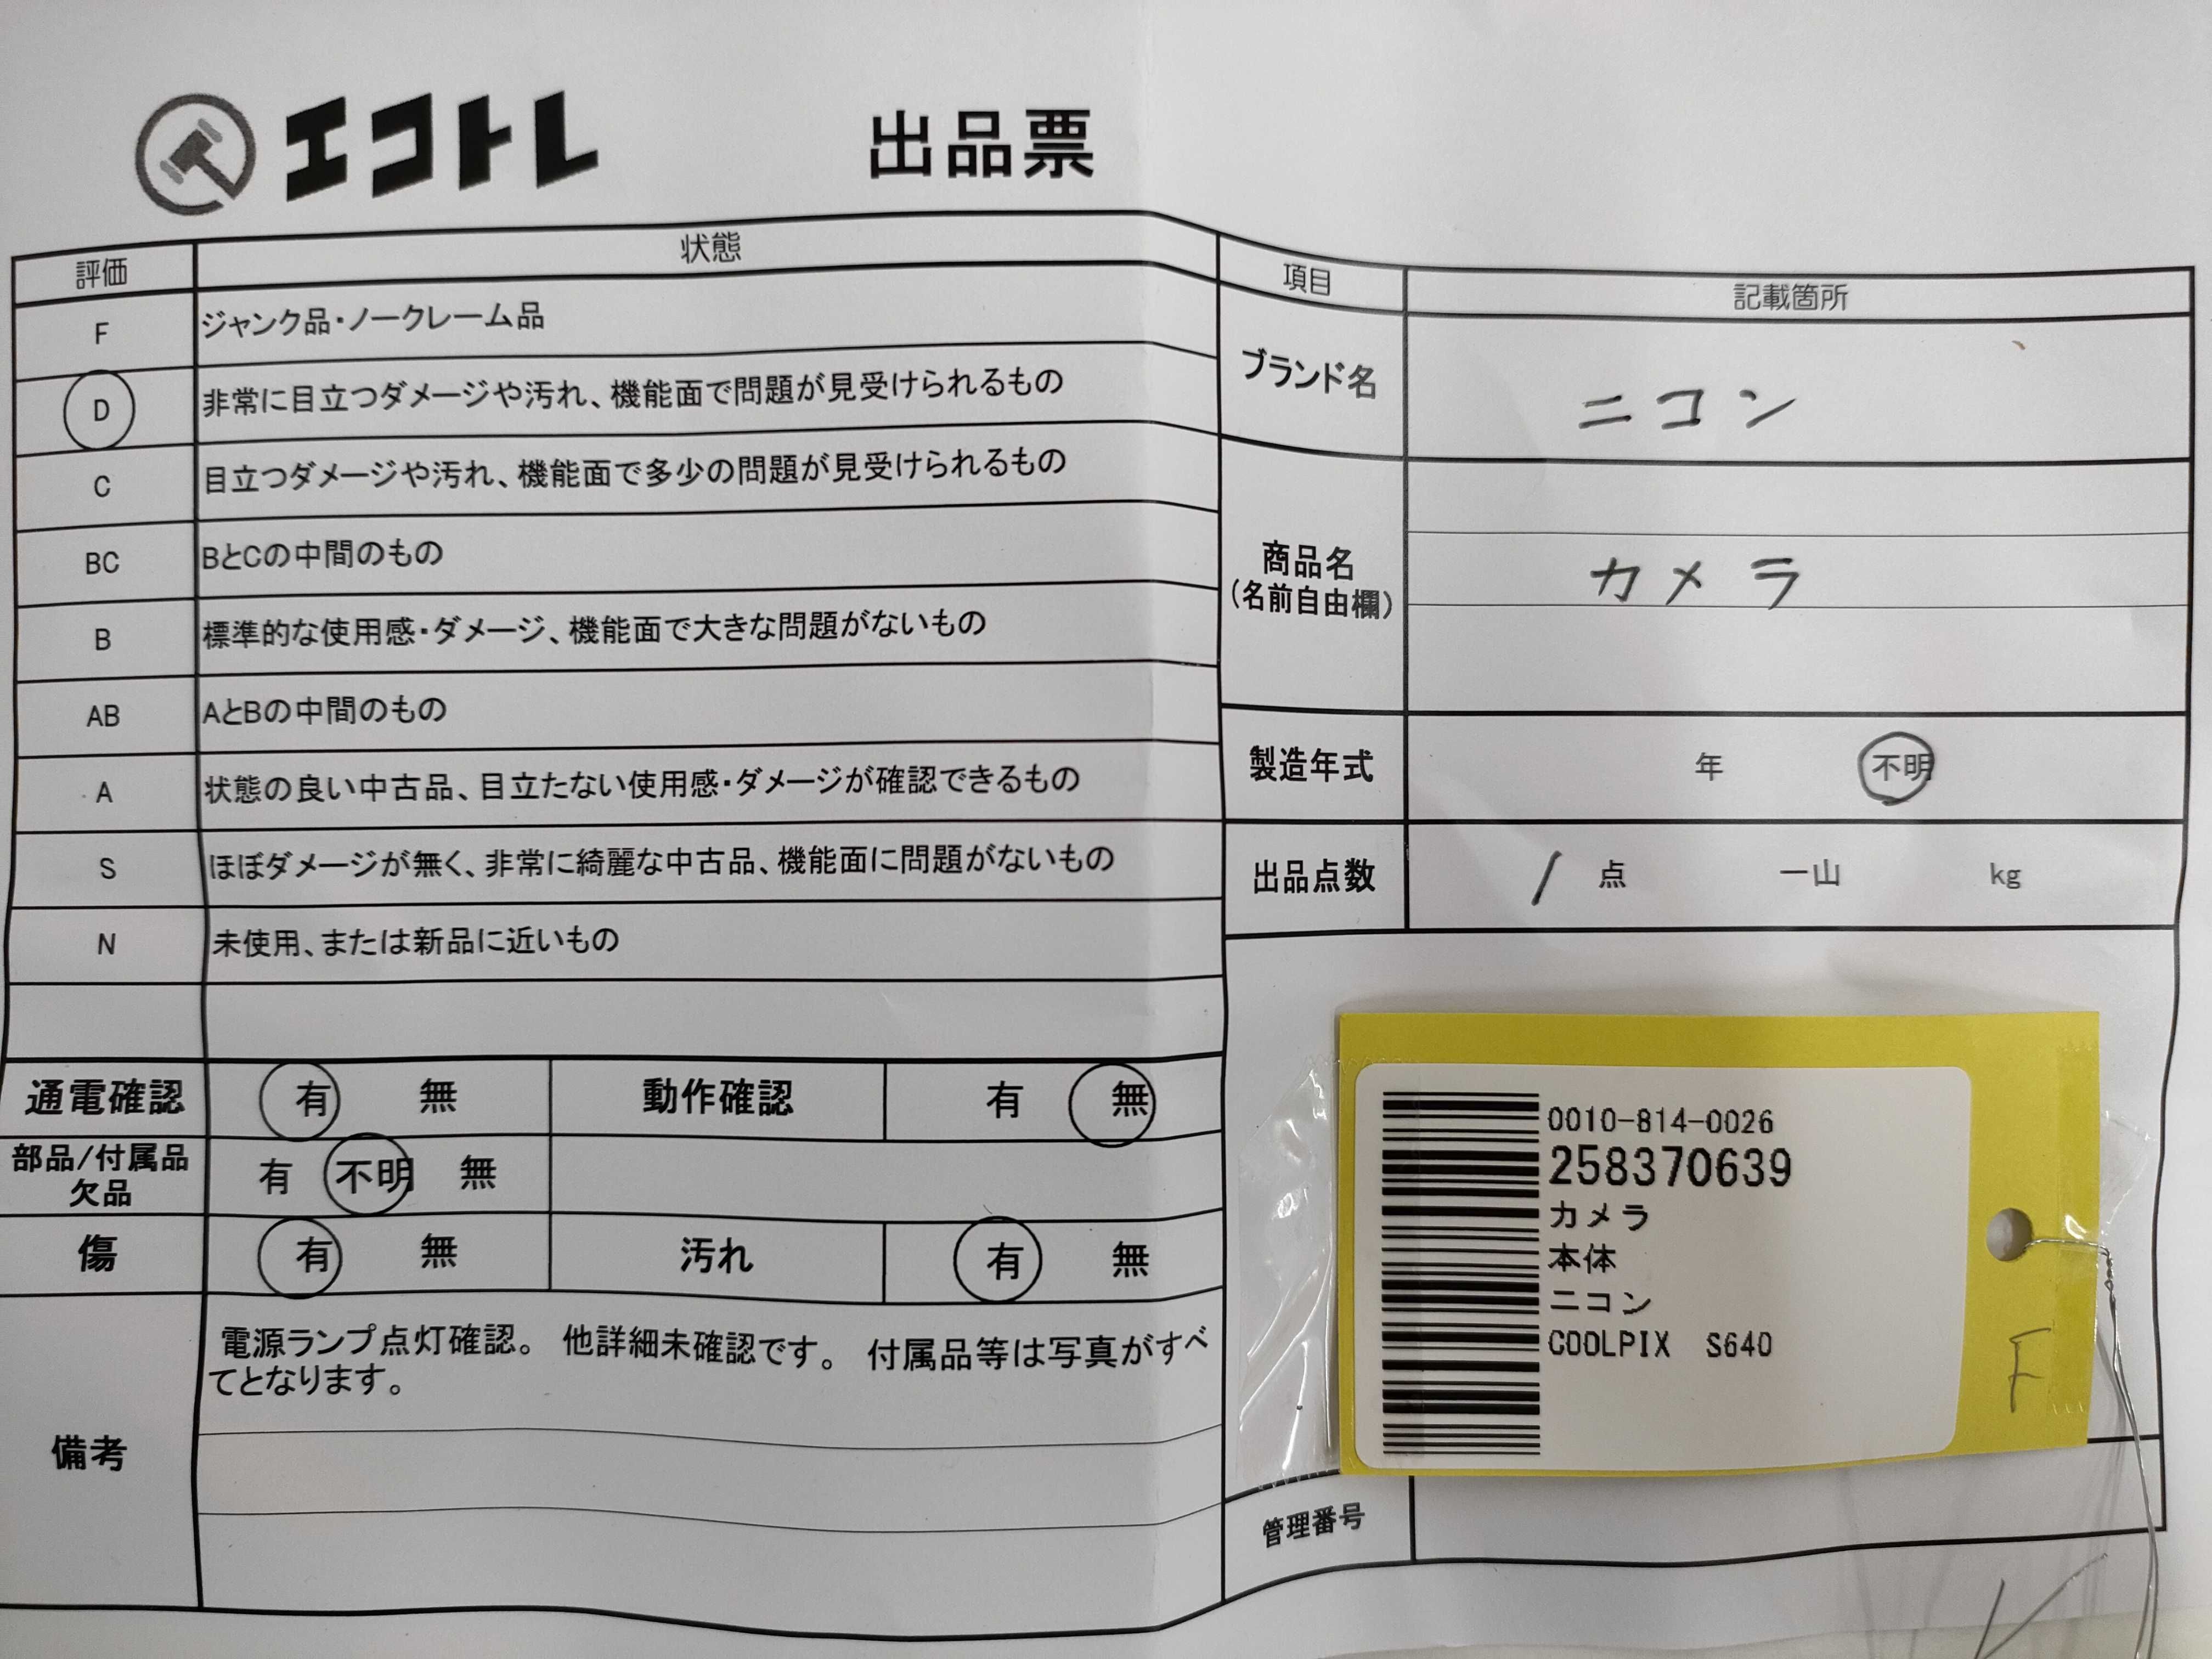 エコトレ 出品票
評価 状態
F ジャンク品・ノークレーム品
D 非常に目立つダメージや汚れ、機能面で問題が見受けられるもの
C 目立つダメージや汚れ、機能面で多少の問題が見受けられるもの
BC BとCの中間のもの
B 標準的な使用感・ダメージ、機能面で大きな問題がないもの
AB AとBの中間のもの
A 状態の良い中古品、目立たない使用感・ダメージが確認できるもの
S ほぼダメージが無く、非常に綺麗な中古品、機能面に問題がないもの
N 未使用、または新品に近いもの
通電確認 有 無 動作確認 有 無
部品/付属品
欠品 有 不明 無
傷 有 無 汚れ 有 無
備考
電源ランプ点灯確認。 他詳細未確認です。 付属品等は写真がすべ
てとなります。
項目 記載箇所
ブランド名 ニコン
商品名
(名前自由欄) カメラ
製造年式 年 不明
出品点数 1 点 一山 kg
0010-814-0026
258370639
カメラ
本体
ニコン
COOLPIX S640
F
管理番号